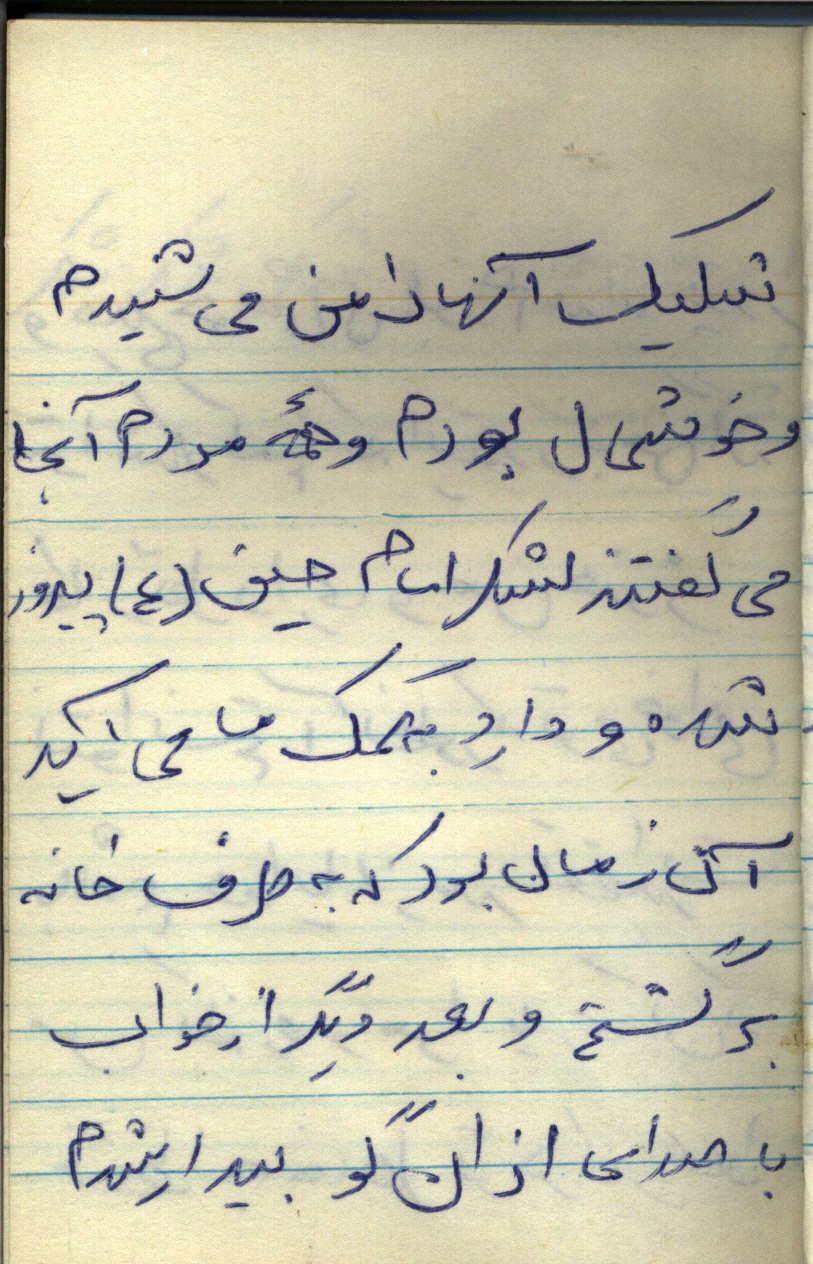 شلیک آنها را من می شنیدم
و خوشحال بودم و همۀ مردم آنجا
می گفتند لشکر امام حسین (ع) پیروز
شده و دارد بکمک ما می آید
آن زمان بود که به طرف خانه
برگشتم و بعد دیگر از خواب
با صدای اذان گو بیدار شدم